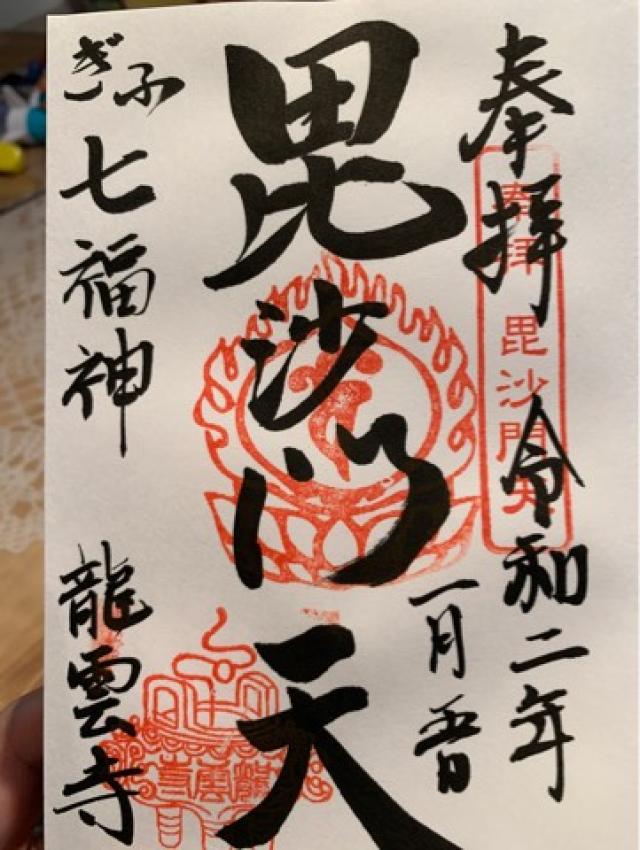 奉拝 令和二年
一月五日
奉拝 毘沙門天
毘沙門天
龍雲寺
ぎふ七福神 龍雲寺